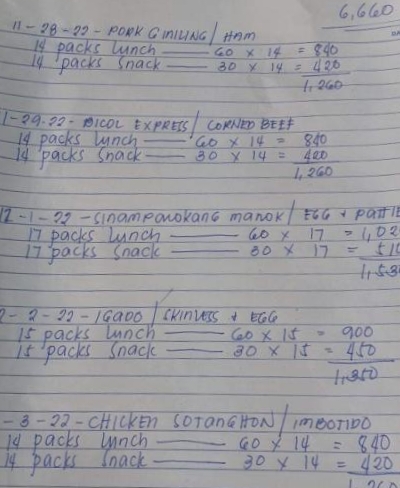 6,660
11-28-22 - PORK GINILING / HAM
14 packs lunch —— 60 x 14 = 840
14 packs snack —— 30 x 14 = 420
1,260
1-29-22 - BICOL EXPRESS / CORNED BEEF
14 packs lunch —— 60 x 14 = 840
14 packs snack —— 30 x 14 = 420
1,260
12-1-22 - SINAMPALOKANG MANOK / EGG + PATTIE
17 packs lunch —— 60 x 17 = 1,02
17 packs snack —— 30 x 17 = 510
1,530
2-2-22 - IGADO / SKINLESS + EGG
15 packs lunch —— 60 x 15 = 900
15 packs snack —— 30 x 15 = 450
1,350
-3-22 - CHICKEN SOTANGHON / IMBOTIDO
14 packs lunch —— 60 x 14 = 840
14 packs snack —— 30 x 14 = 420
1,260